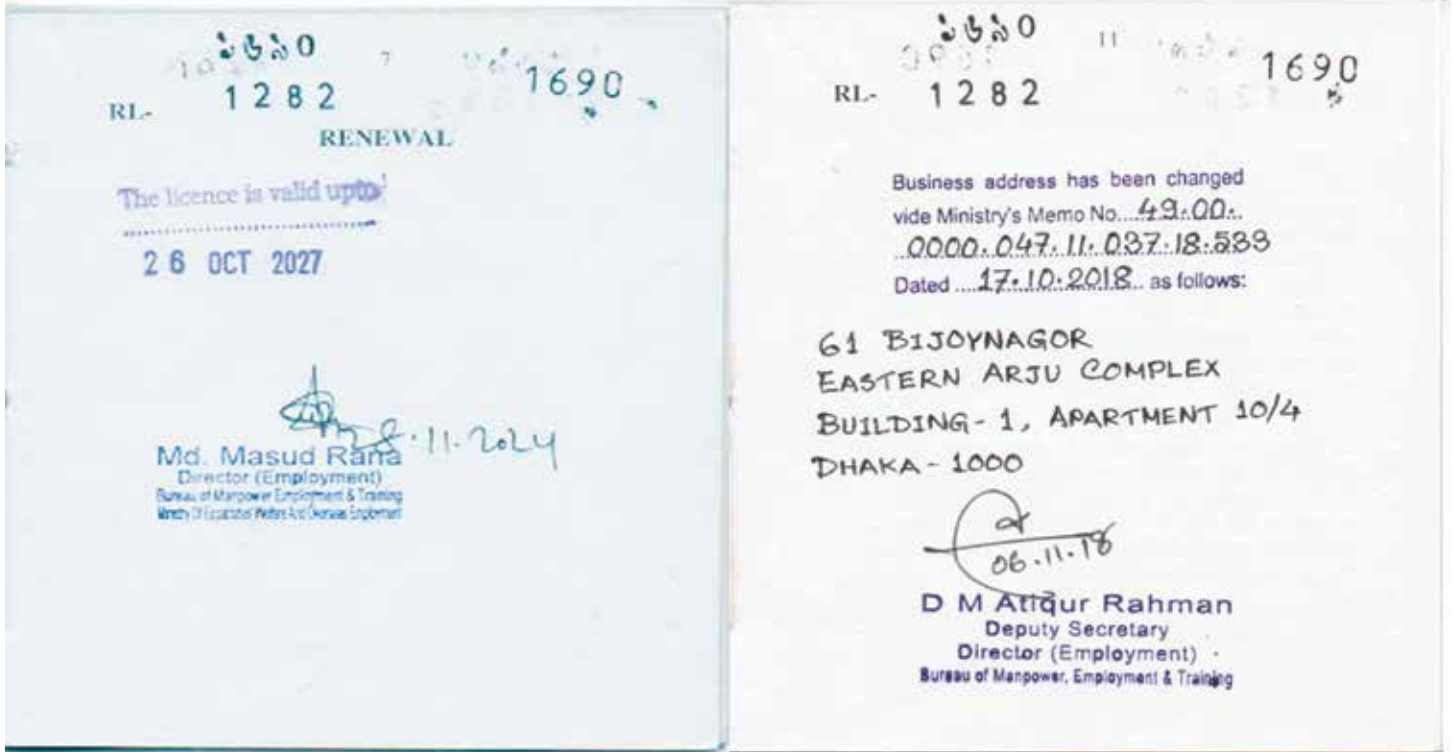 7
1690
RL- 1282
RENEWAL
The licence is valid upto
26 OCT 2027
8.11.2024
Md. Masud Rana
Director (Employment)
Bureau of Manpower Employment & Training
Ministry Of Expatriates' Welfare And Overseas Employment
11
1690
RL- 1282
Business address has been changed
vide Ministry's Memo No....49.00..
0000.047.11.037.18.533
Dated ....17.10.2018.. as follows:
61 BIJOYNAGOR
EASTERN ARJU COMPLEX
BUILDING - 1, APARTMENT 10/4
DHAKA - 1000
06.11.18
D M Atiqur Rahman
Deputy Secretary
Director (Employment)
Bureau of Manpower, Employment & Training